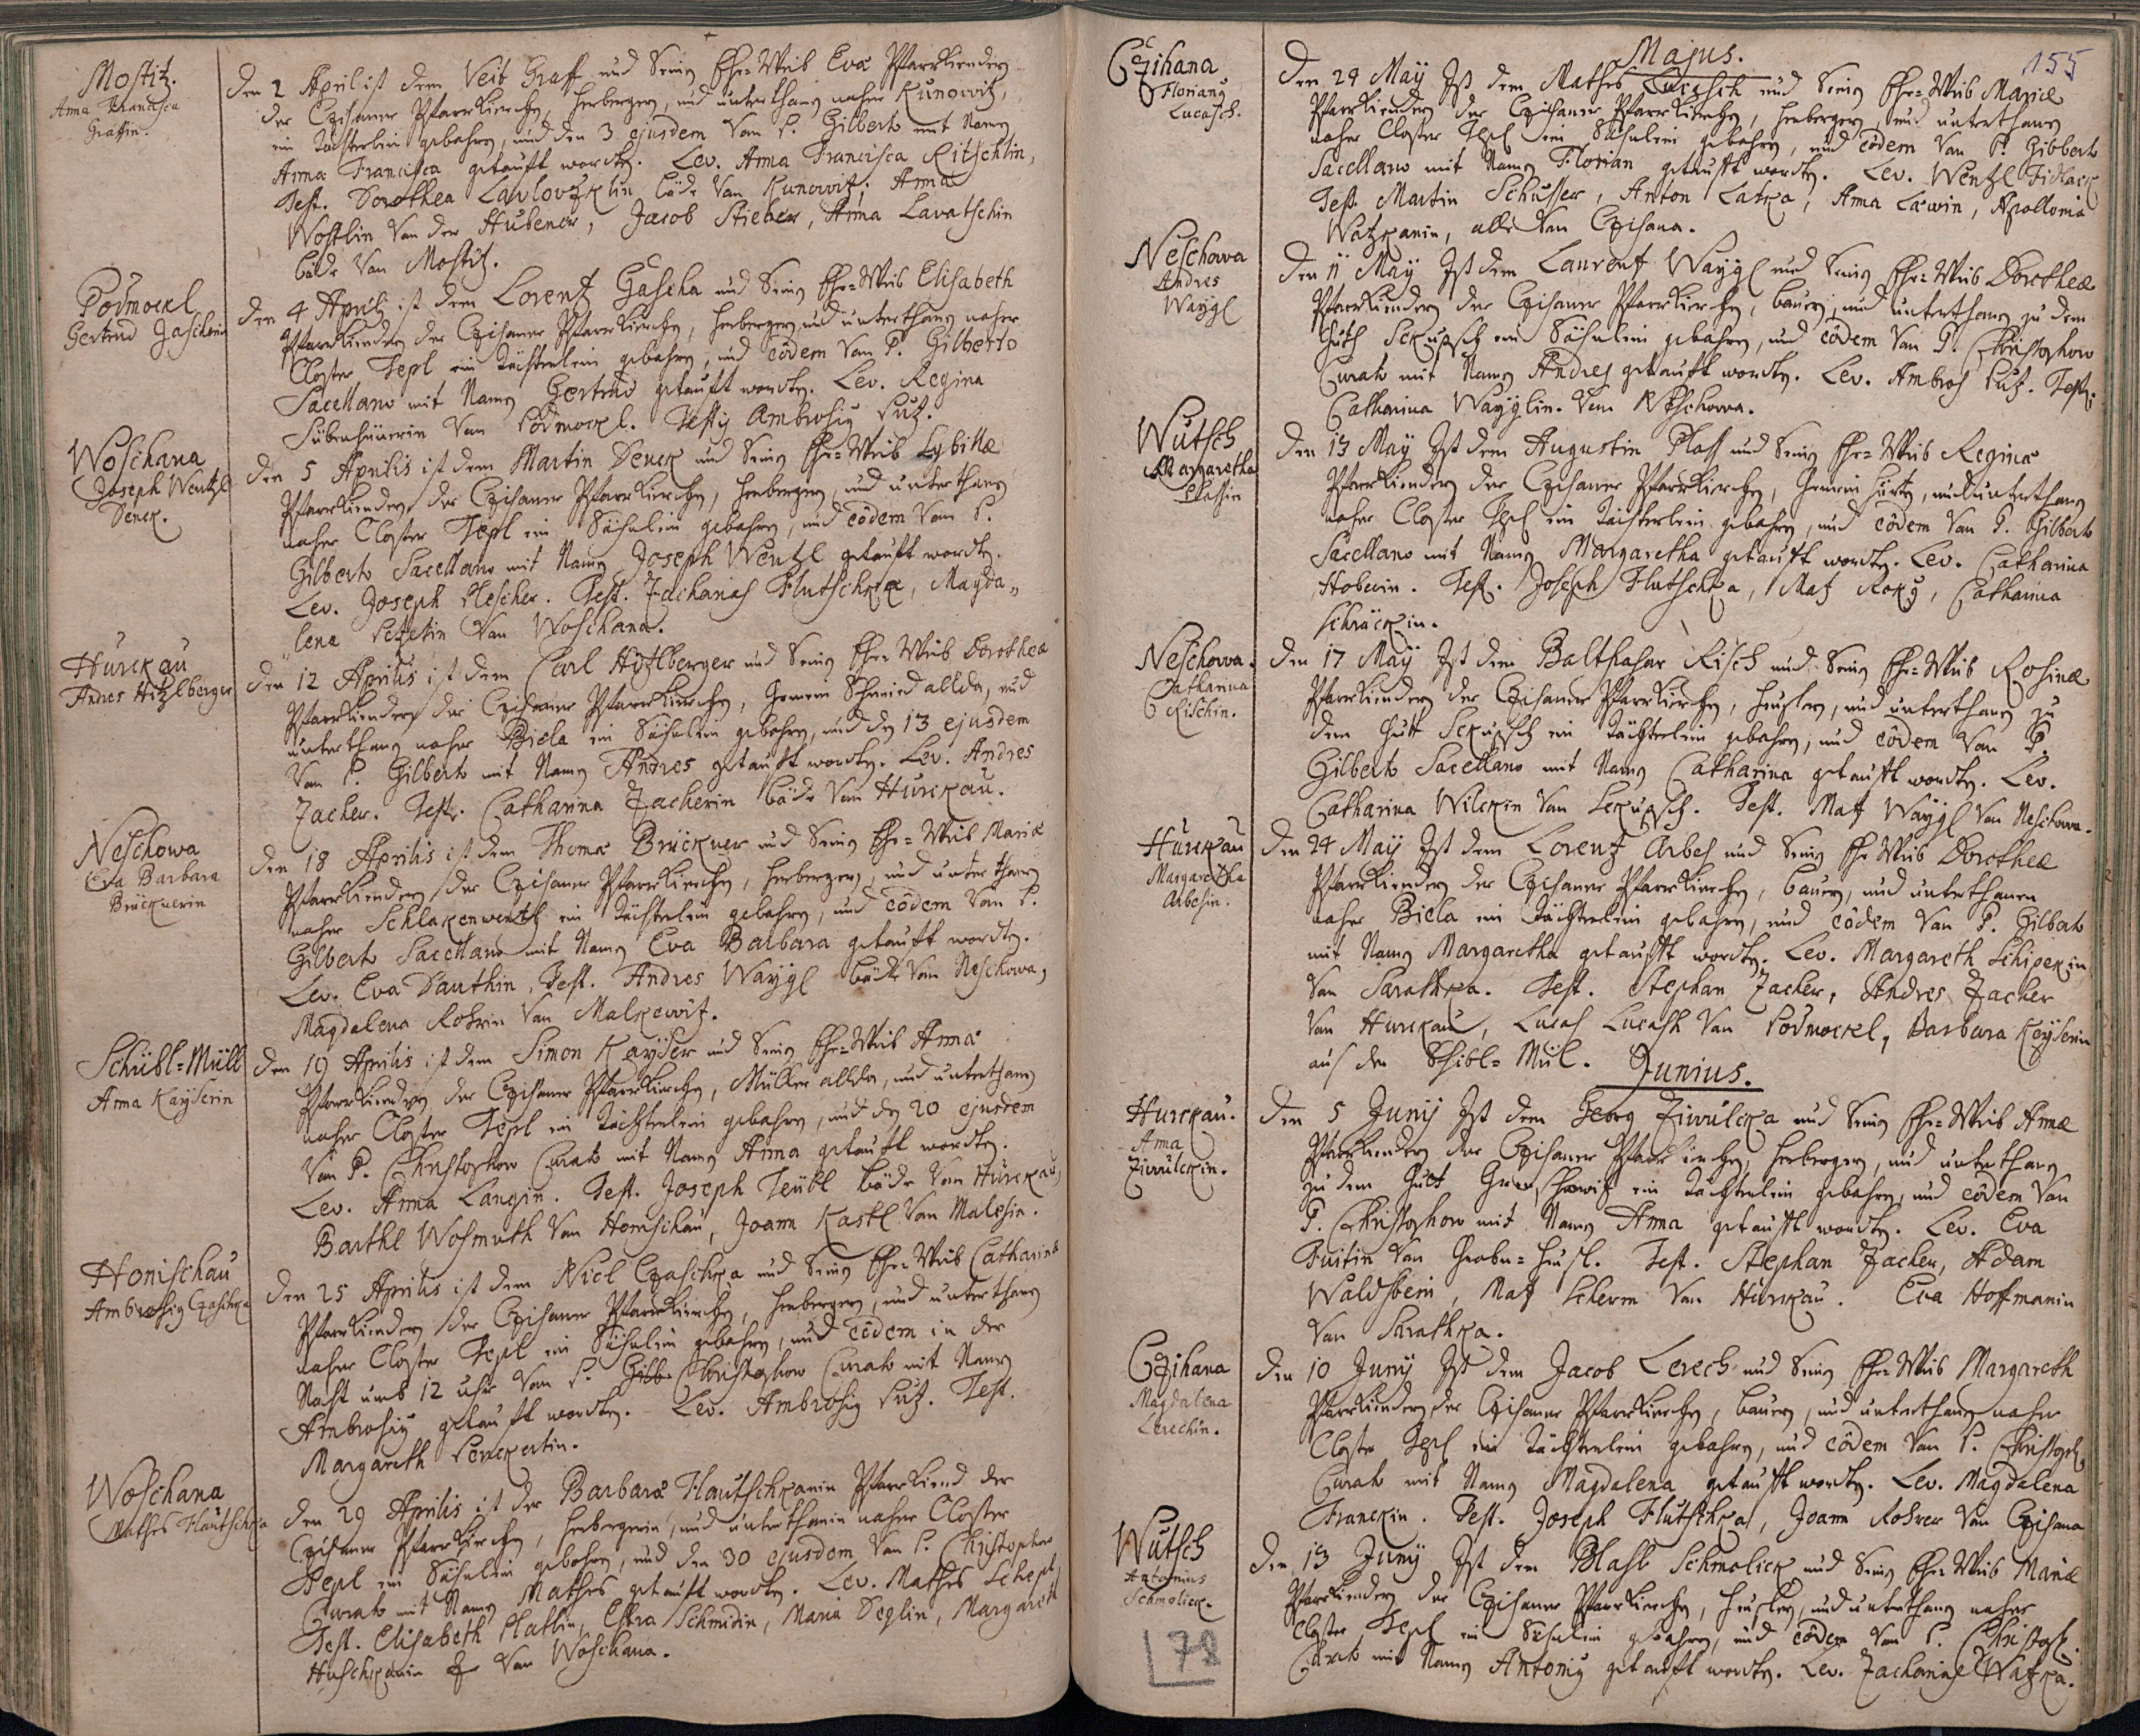 Mostitz.
Anna Francisca
Graffin.
Den 2 April ist dem Veit Graff und Seing Ehe=Weib Eva Pfarrkinder
der Czihaner Pfarrkirchg, Herberger, und unterthang naher Kunowitz,
ein Töchterlein gebohrn, und den 3 ejusdem Von P. Gilberto mit Namg
Anna Francisca getaufft wordtg. Lev. Anna Francisca Ritschlin,
Test. Dorothea bäde Von Kunowitz; Anna
Wostlin Von der Hubener, Jacob Stieber, Anna Lavatschin
bäde Von Mostitz.
Podmockl
Gertrud Gaschin
Den 4 Aprilis ist dem Lorentz Gascha und Seing Ehe=Weib Elisabeth
Pfarrkinder der Czihaner Pfarrkirchg, Herberger und unterthang naher
Closter Tepl ein Töchterlein gebohrn, und eodem Von P. Gilberto
Sacellano mit Namg Gertrud getaufft wordtg. Lev. Regina
Von Podmockl. Testis Ambrosig Putz.
Woschana
Joseph Wentzl
Denck.
Den 5 Aprilis ist dem Martin Denck und Seing Ehe=Weib Sybilla
Pfarrkinder der Czihaner Pfarrkirchg, Herberger, und unterthang
naher Closter Tepl ein Söhnlein gebohrn, und eodem Von P.
Gilberto Sacellano mit Namg Joseph Wentzl getaufft wordtg.
Lev. Joseph Plescher. Test. Zacharias Hlutschka, Magda„
„lena Von Woschana.
Hurckau
Andres Hitzlberger
Den 12 Aprilis ist dem Carl Hitzlberger und Seing Ehe=Weib Dorothea
Pfarrkinder der Czihaner Pfarrkirchg, Gemein Schmied allda, und
unterthang naher Biela ein Söhnlein gebohrn, und dg 13 ejusdem
Von P. Gilberto mit Namg Andres getaufft wordtg. Lev. Andres
Zacher. Test. Catharina Zacherin bäde Von Hurckau.
Neschowa
Eva Barbara
Brücknerin
Den 18 Aprilis ist dem Thoma Brückner und Seing Ehe=Weib Maria
Pfarrkinder der Czihaner Pfarrkirchg, Herberger, und unterthang
naher Schlakenwerth ein Töchterlein gebohrn, und eodem Von P.
Gilberto Sacellano mit Namg Eva Barbara getaufft wordtg.
Lev. Eva Dauthin, Test. Andres Waÿgl bäde Von Neschowa,
Magdalena Rohrin Von Malkowitz.
Schübl=Müll
Anna Kaÿserin
Den 19 Aprilis ist dem Simon Kaÿser und Seing Ehe=Weib Anna
Pfarrkinder der Czihaner Pfarrkirchg, Müller allda, und unterthang
naher Closter Tepl ein Töchterlein gebohrn, und dg 20 ejusdem
Von P. Christophoro Curato mit Namg Anna getaufft wordtg.
Lev. Anna Langin. Test. Joseph Teübl bäde Von Hurckau,
Barthl Wohmuth Von Honischau, Joann Kastl Von Malesin.
Honischau
Ambrosig Czaschka
Den 25 Aprilis ist dem Nicl Czaschka und Seing Ehe=Weib Catharina
Pfarrkinder der Czihaner Pfarrkirchg, Herberger, und unterthang
naher Closter Tepl ein Söhnlein gebohrn, und eodem in der
Nacht umb 12 uhr Von P. Gilb Christophoro Curato mit Namg
Ambrosig getaufft wordtg. Lev. Ambrosig Putz. Test.
Margareth Penckertin.
Woschana
Mathes Hlautschka
Den 29 Aprilis ist der Barbara Hlautschkanin Pfarrkind der
Czihaner Pfarrkirchg, Herbergerin, und unterthanin naher Closter
Tepl ein Söhnlein gebohrn, und den 30 ejusdem Von P. Christophoro
Curato mit Namg Mathes getaufft wordtg. Lev. Mathes
Test. Elisabeth Schmidin, Maria Deglin, Margareth
Von Woschana.
155
Majus.
Czihana
Floriang
Lucasch.
Den 29 Maÿ Ist dem Mathes Lucasch und Seing Ehe=Weib Maria
Pfarrkinder der Czihaner Pfarrkirchg, Herberger, und unterthang
naher Closter Tepl ein Söhnlein gebohrn, und eodem Von P. Gilberto
Sacellano mit Namg Florian getaufft wordtg. Lev. Wentzl Fidlack
Test. Martin Schusser, Anton Latka, Anna Lawin, Apollonia
Watzkanin, alle Von Czihana.
Neschowa
Andres
Waÿgl
Den 11 Maÿ Ist dem Laurentz Waÿgl und Seing Ehe=Weib Dorothea
Pfarrkinder der Czihaner Pfarrkirchg, bauer, und unterthang zu dem
Guth Skupsch ein Söhnlein gebohrn, und eodem Von P. Christophoro
Curato mit Namg Andres getaufft wordtg. Lev. Ambros Putz. Test.
Catharina Waÿglin. Von Neschowa.
Wutsch
Margaretha
Plassin
Den 13 Maÿ Ist dem Augustin Plass und Seing Ehe=Weib Regina
Pfarrkinder der Czihaner Pfarrkirchg, Gemein Hürtg, und unterthang
naher Closter Tepl ein Töchterlein gebohrn, und eodem Von P. Gilberto
Sacellano mit Namg Margaretha getaufft wordtg. Lev. Catharina
Hoberin. Test. Joseph Hlutschka, Matz Roky, Catharina
Schräckin.
Neschowa.
Catharina
Rischin.
Den 17 Maÿ Ist dem Balthasar Risch und Seing Ehe=Weib Rosina
Pfarrkinder der Czihaner Pfarrkirchg, Heusler, und unterthang zu
dem Gutt Skupsch ein Töchterlein gebohrn, und eodem Von P.
Gilberto Sacellano mit Namg Catharina getaufft wordtg. Lev.
Catharina Wilckin Von Skupsch. Test. Matz Waÿgl Von Neschowa.
Hurckau
Margaretha
Arbesin.
Den 24 Maÿ Ist dem Lorentz Arbes und Seing Ehe Weib Dorothea
Pfarrkinder der Czihaner Pfarrkirchg, bauer, und unterthanen
naher Biela ein Töchterlein gebohrn, und eodem Von P. Gilberto
mit Namg Margaretha getaufft wordtg. Lev. Margareth Schipekin
Von Sarathka. Test. Stephan Zacher, Andres Zacher
Von Hurckau, Lucas Lucasch Von Podmockel, Barbara Keÿserin
aus der Schibl=Mül.
Junius.
Hurckau.
Anna
Ziwulckin.
Den 5 Junÿ Ist dem Georg Ziwulcka und Seing Ehe=Weib Anna
Pfarrkinder der Czihaner Pfarrkirchg, Herberger, und unterthang
zu dem Gutt ein Töchterlein gebohrn, und eodem Von
P. Christophoro mit Namg Anna getaufft wordtg. Lev. Eva
Fuitin Von Test. Stephan Zacher, Adam
Waldstein, Matz Scherm Von Hurckau. Eva Hoffmanin
Von Sarathka.
Czihana
Magdalena
Lerechin.
Den 10 Junÿ Ist dem Jacob Lerech und Seing Ehe=Weib Margareth
Pfarrkinder der Czihaner Pfarrkirchg, bauer, und unterthang naher
Closter Tepl ein Töchterlein gebohrn, und eodem Von P. Christoph.
Curato mit Namg Magdalena getaufft wordtg. Lev. Magdalena
Franckin. Test. Joseph Hlutschka, Joann Rohrer Von Czihana
Wutsch
Antonius
Schmolick.
Den 13 Junÿ Ist dem Blasÿ Schmolick und Seing Ehe=Weib Maria
Pfarrkinder der Czihaner Pfarrkirchg, Heusler, und unterthang naher
Closter Tepl ein Söhnlein gebohrn, und eodem Von P. Christoph.
Curato mit Namg Antonig getaufft wordtg. Lev. Zacharias Watzka.
78